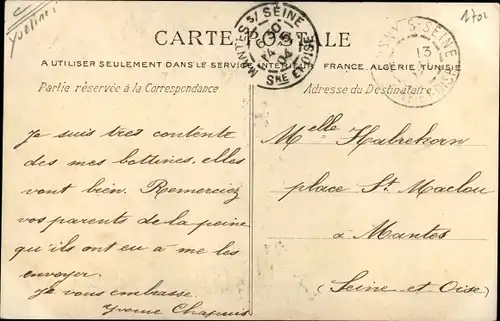 Yvelines
1701
CARTE POSTALE
A UTILISER SEULEMENT DANS LE SERVICE INTÉRIEUR FRANCE, ALGÉRIE, TUNISIE
MANTES S/ SEINE
6 30
04
SNE ET OISE
S. SEINE
13
Partie réservée à la Correspondance
Adresse du Destinataire
Je suis très contente
des mes bottines, elles
vont bien. Remerciez
vos parents de la peine
qu'ils ont eu à me les
envoyer.
Je vous embrasse.
Yvonne Chapuis
Melle Habrekorn
place St Maclou
à Mantes
(Seine et Oise)